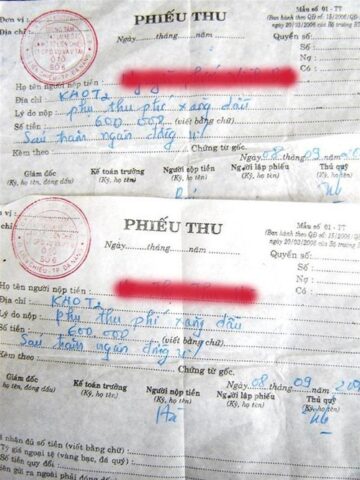 Đơn vị:
PHIẾU THU
Mẫu số 01 - TT
Địa chỉ:
(Ban hành theo QĐ số: 15/2006/QĐ
Ngày tháng năm
ngày 20/03/2006 của Bộ trưởng BT
Quyển số:
Số:
Nợ:
Có:
Họ tên người nộp tiền
Địa chỉ: KHOT2
Lý do nộp phụ thu phí xăng dầu
Số tiền: 600.000 (viết bằng chữ)
Sáu trăm ngàn đồng
Kèm theo: Chứng từ gốc.
Ngày 08 tháng 09
Giám đốc Kế toán trưởng Người nộp tiền Người lập phiếu Thủ quỹ
(Ký, họ tên, đóng dấu) (Ký, họ tên) (Ký, họ tên) (Ký, họ tên) (Ký, họ tên)
vị:
PHIẾU THU
Mẫu số 01 - TT
chỉ:
(Ban hành theo QĐ số: 15/2006/QĐ
Ngày tháng năm
ngày 20/03/2006 của Bộ trưởng
Quyển số:
Số:
Nợ:
Có:
Họ tên người nộp tiền
Địa chỉ: KHOT2
Lý do nộp phụ thu phí xăng dầu
Số tiền: 600.000 (viết bằng chữ)
Sáu trăm ngàn đồng
Kèm theo: Chứng từ gốc.
Ngày 08 tháng 09
Giám đốc Kế toán trưởng Người nộp tiền Người lập phiếu Thủ quỹ
họ tên, đóng dấu) (Ký, họ tên) (Ký, họ tên) (Ký, họ tên) (Ký, họ tên)
Hà
nhận đủ số tiền (viết bằng chữ)
Tỷ giá ngoại tệ (vàng bạc, đá quý)
Số tiền quy đổi:
gửi ra ngoài phải đóng dấu)